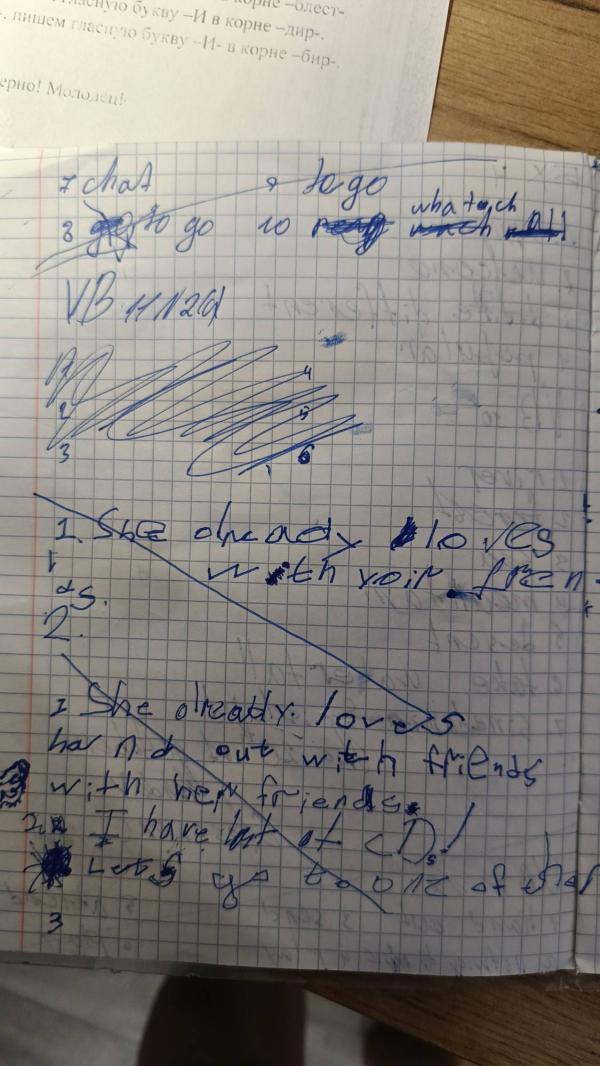 корне –блест-
гласную букву –И в корне –дир-.
. пишем гласную букву –И- в корне –бир-.
ерно! Молодец!
7 chat 9 to go
8 to go 10 whatach
VB 11 N2a
1 4
2 5
3 6
1. She alrready loves
with yoir fren
ds.
2.
1 She already loves
hand out with friends
with her friends.
2. I have lot of CDs!
Lets go to one of
3